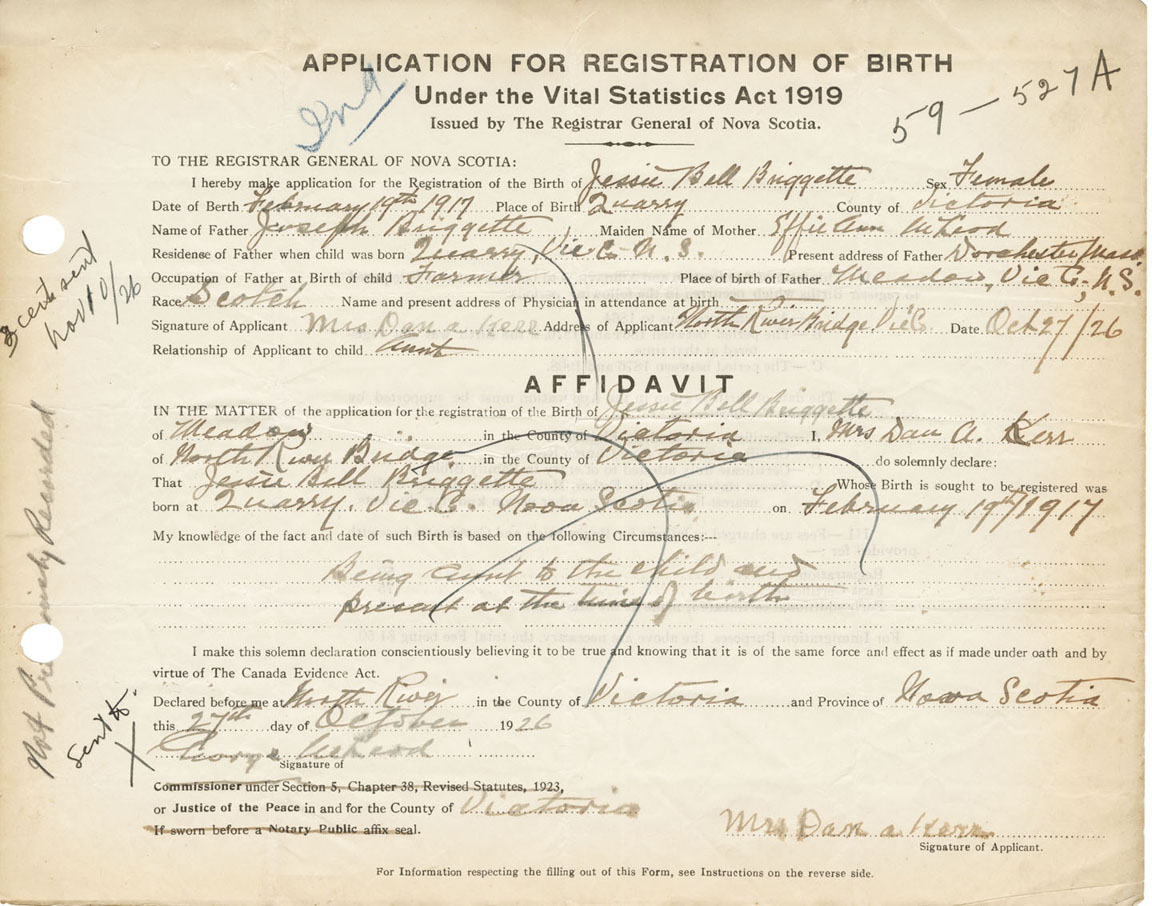 APPLICATION FOR REGISTRATION OF BIRTH
Ind
59-527A
Under the Vital Statistics Act 1919
Issued by The Registrar General of Nova Scotia.
TO THE REGISTRAR GENERAL OF NOVA SCOTIA:
I hereby make application for the Registration of the Birth of Jessie Bell Briggette Sex Female
Date of Berth February 19th 1917 Place of Birth Quarry County of Victoria
Name of Father Joseph Briggette Maiden Name of Mother Effie Ann McLeod
Residense of Father when child was born Quarry, Vic C. N. S. Present address of Father Dorchester/Mass
Occupation of Father at Birth of child Farmer Place of birth of Father Meadow, Vic Co, N.S.
Race Scotch Name and present address of Physician in attendance at birth
Signature of Applicant Mrs Dan a Kerr Address of Applicant North River Bridge Vic Co. Date Oct 27/26
Relationship of Applicant to child Aunt
cert sent
Nov 10/26
AFFIDAVIT
IN THE MATTER of the application for the registration of the Birth of Jessie Bell Briggette
of Meadow in the County of Victoria I, Mrs Dan A. Kerr
of North River Bridge in the County of Victoria do solemnly declare:
That Jessie Bell Briggette Whose Birth is sought to be registered was
born at Quarry, Vic C. Nova Scotia on February 19th/1917
My knowledge of the fact and date of such Birth is based on the following Circumstances:--
Being aunt to the child and
present at the time of birth
Not Previously Recorded
I make this solemn declaration conscientiously believing it to be true and knowing that it is of the same force and effect as if made under oath and by
virtue of The Canada Evidence Act.
Declared before me at North River in the County of Victoria and Province of Nova Scotia
this 27th day of October 1926
George McLeod
Signature of
Sent to
X
Commissioner under Section 5, Chapter 38, Revised Statutes, 1923,
or Justice of the Peace in and for the County of Victoria
If sworn before a Notary Public affix seal.
Mrs Dan a Kerr
Signature of Applicant.
For Information respecting the filling out of this Form, see Instructions on the reverse side.